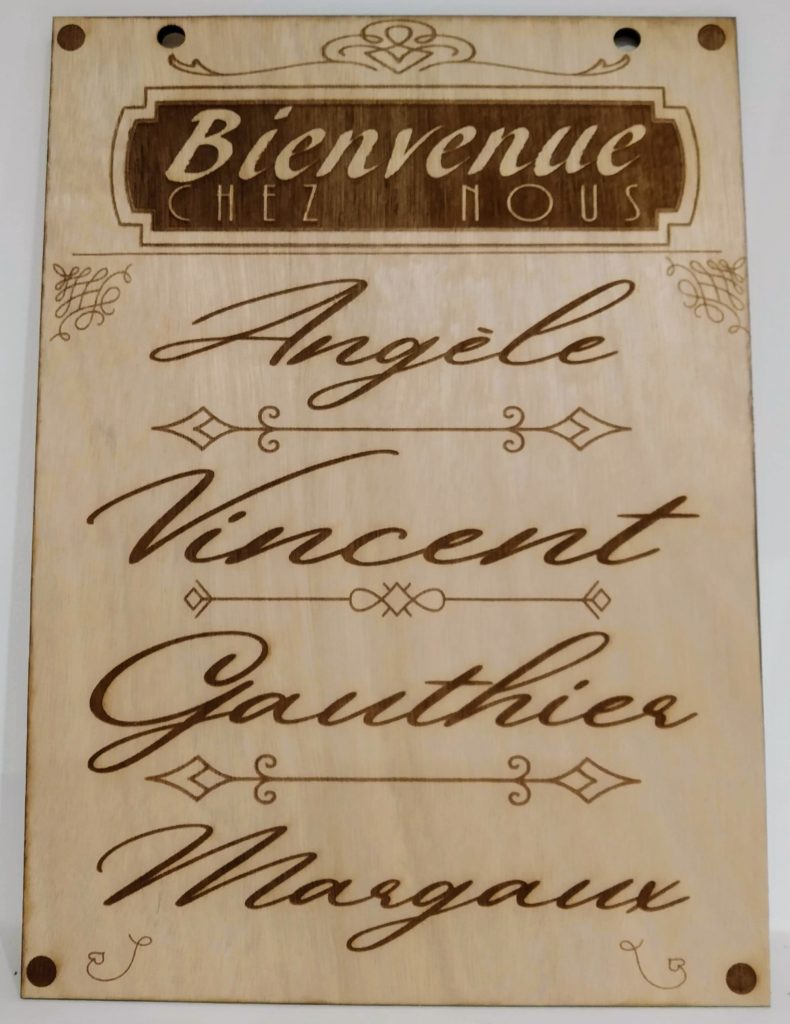 Bienvenue
CHEZ NOUS
Angèle
Vincent
Gauthier
Margaux